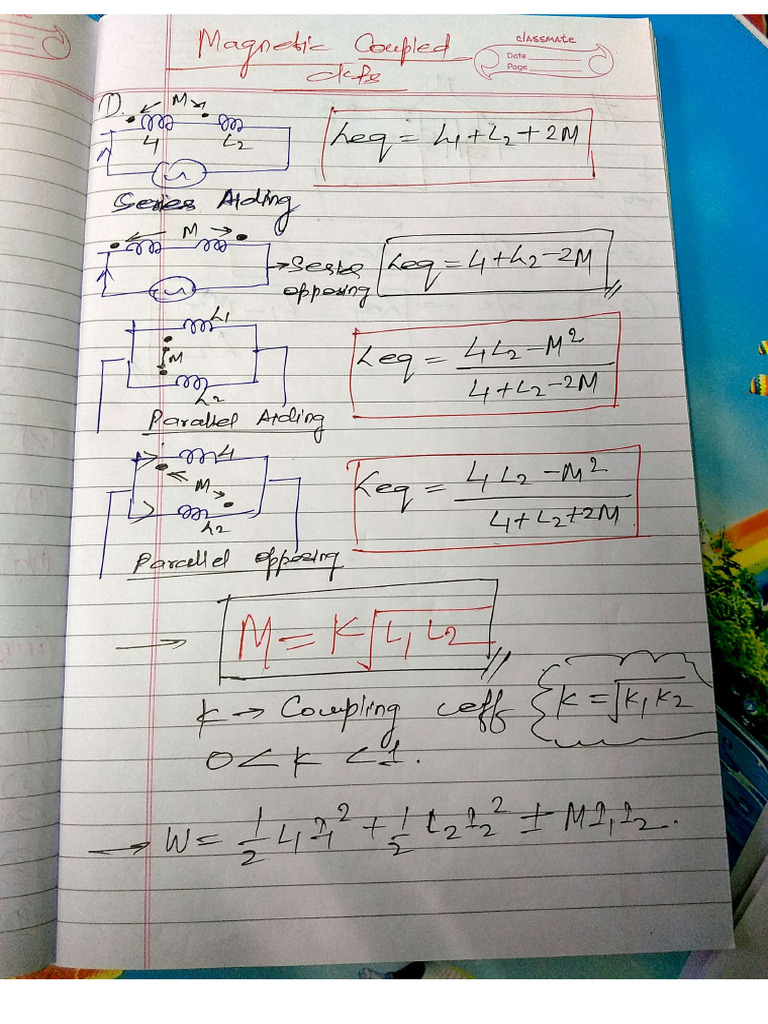 Magnetic Coupled
ckts
classmate
Date
Page
1).
M
L1 L2
Leq = L1 + L2 + 2M
Series Aiding
M
Series
opposing
Leq = L1 + L2 - 2M
L1
M
L2
Leq = L1 L2 - M²
L1 + L2 - 2M
Parallel Aiding
L1
M
L2
Leq = L1 L2 - M²
L1 + L2 + 2M
Parallel opposing
→ M = K√L1 L2
K → Coupling coeff
K = √K1 K2
0 < K < 1.
→ W = 1/2 L1 I1² + 1/2 L2 I2² ± M I1 I2.